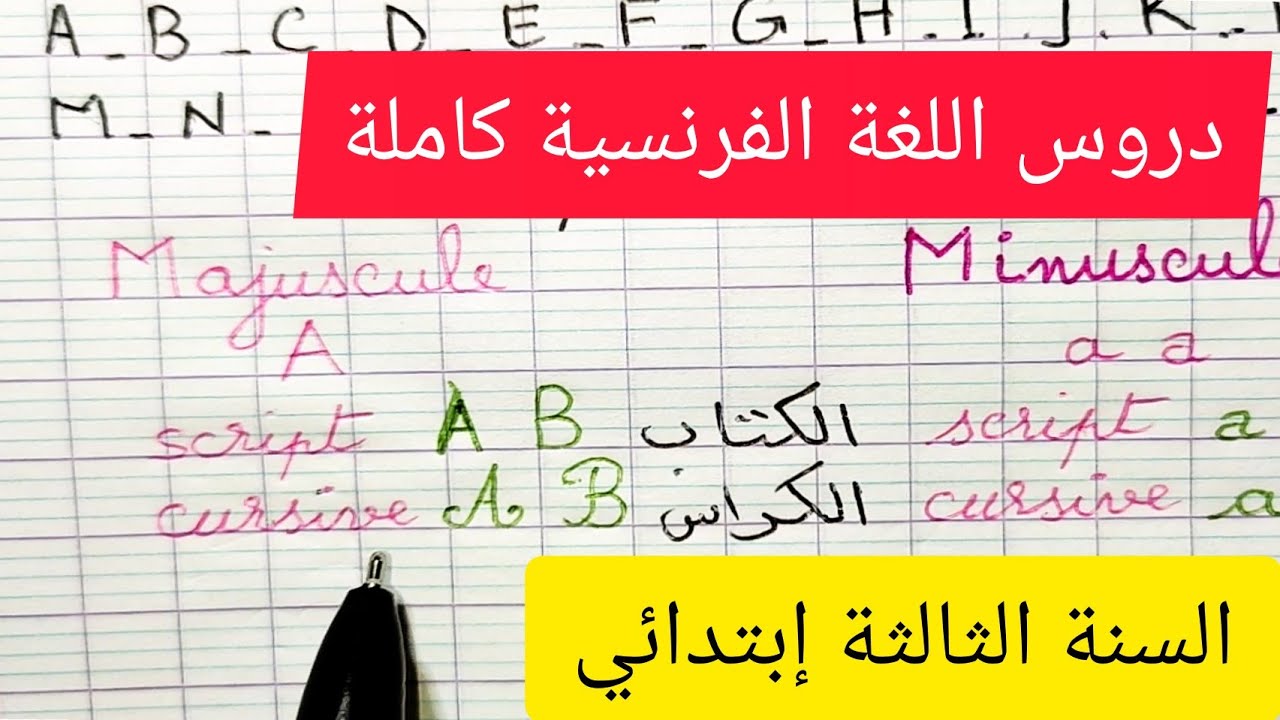 A_B_C_D_E_F_G_H.I.J.K..
M_N_
دروس اللغة الفرنسية كاملة
Majuscule Minuscul
A a a
script A B الكتاب script a
cursive A B الكراس cursive a
السنة الثالثة إبتدائي